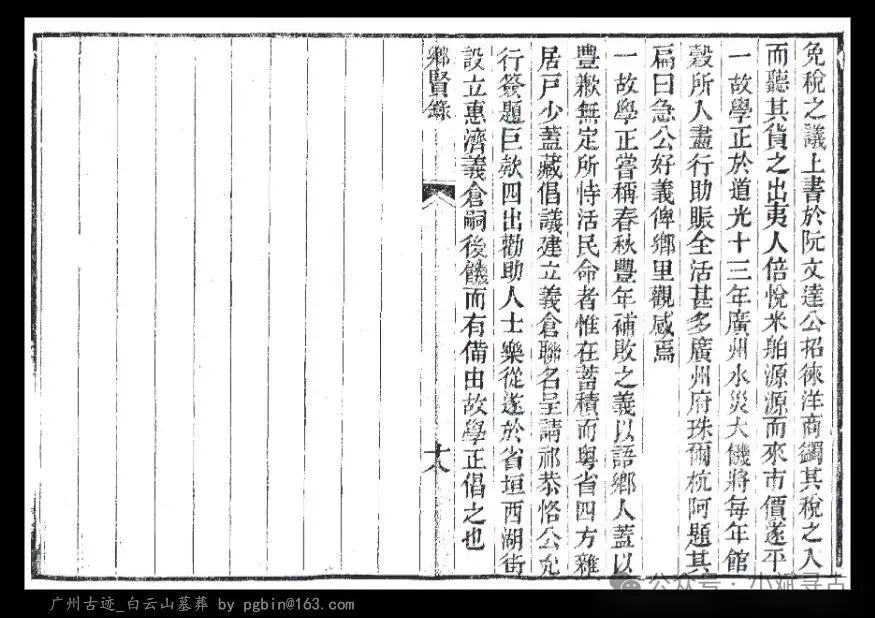 免稅之議上書於阮文達公招徠洋商蠲其稅之入
而聽其貨之出夷人倍悅米舶源源而來市價遂平
一故學正於道光十三年廣州水災大饑將每年館
穀所入盡行助賑全活甚多廣州府珠爾杭阿題其
扁曰急公好義俾鄉里觀感焉
一故學正嘗稱春秋豐年補敗之義以語鄉人蓋以
豐歉無定所恃活民命者惟在蓄積而粵省四方雜
居戸少蓋藏倡議建立義倉聯名呈請祁恭恪公允
行簽題巨款四出勸助人士樂從遂於省垣西湖街
設立惠濟義倉嗣後饑而有備由故學正倡之也
鄉賢錄
十八
公众号·小斌寻古
广州古迹_白云山墓葬 by pgbin@163.com